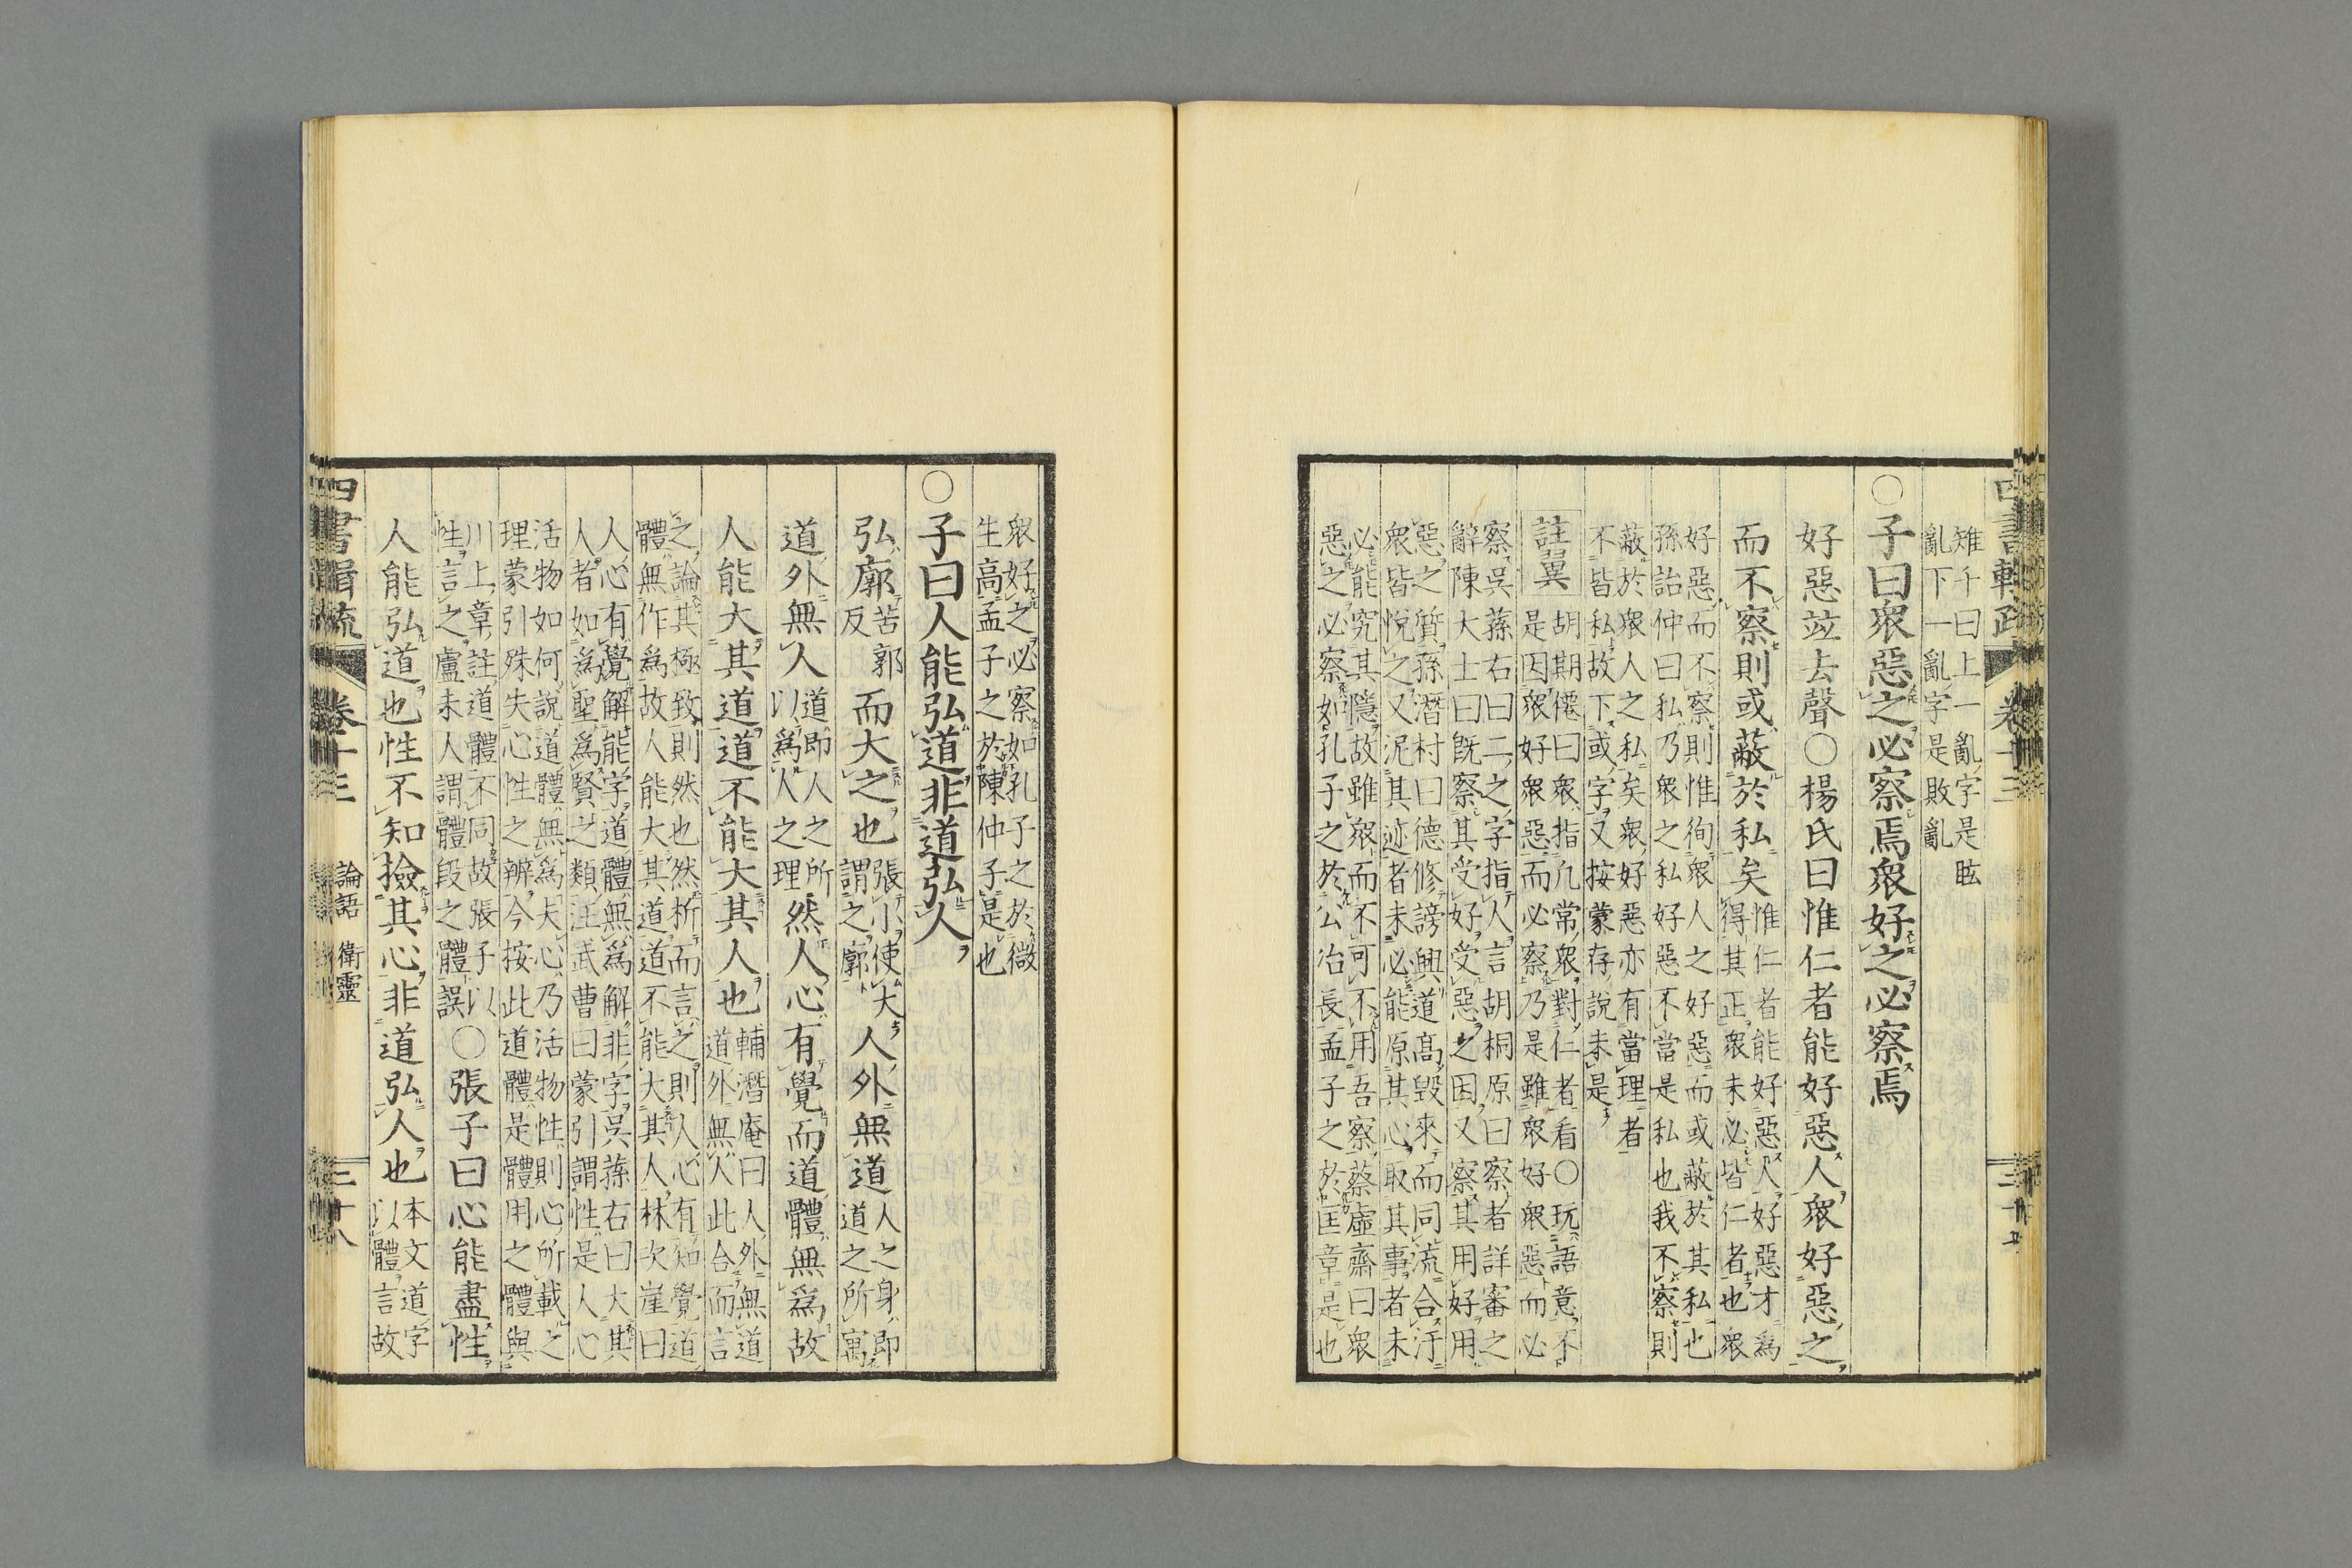 雉千曰上一亂字是眩
亂下一亂字是敗亂
○子曰衆惡之必察焉衆好之必察焉
好惡竝去聲○楊氏曰惟仁者能好惡人衆好惡之
而不察則或蔽於私矣
惟仁者能好惡人好惡才爲
得其正衆未必皆仁者也衆
好惡而不察則惟徇衆人之好惡而或蔽於其私也
孫詒仲曰私乃衆之私好惡不當是私也我不察則
蔽於衆人之私矣衆好惡亦有當理者
不皆私故下或字又按蒙存說未是
註翼
胡期僊曰衆指凡常衆對仁者看○玩語意不
是因衆好衆惡而必察乃是雖衆好衆惡而必
察吳蓀右曰二之字指人言胡桐原曰察者詳審之
辭陳大士曰旣察其受好受惡之因又察其用好用
惡之質孫潛村曰德修謗興道高毀來而同流合汙
衆皆悅之又泥其迹者未必能原其心取其事者未
必能究其隱故雖衆而不可不用吾察蔡虛齋曰衆
惡之必察如孔子之於公冶長孟子之於匡章是也
四書輯疏 卷十三
衆好之必察如孔子之於微
生高孟子之於陳仲子是也
○子曰人能弘道非道弘人
弘廓苦郭反而大之也張小使大謂之廓人外無道人之身卽道之所寓
道外無人道卽人之所以爲人之理然人心有覺而道體無爲故
人能大其道道不能大其人也輔潛庵曰人外無道道外無人此合而言
之論其極致則然也然析而言之則人心有知覺道
體無作爲故人能大其道道不能大其人林次崖曰
人心有覺解能字道體無爲解非字吳蓀右曰大其
人者如爲聖爲賢之類汪武曹曰蒙引謂性是人心
活物如何說道體無爲夫心乃活物性則心所載之
理蒙引殊失心性之辨今按此道體是體用之體與
川上章註道體不同故張子以
性言之盧未人謂體段之體誤
○張子曰心能盡性
人能弘道也性不知撿其心非道弘人也本文道字以體言故
四書輯疏 卷十三 論語 衛靈 三十八